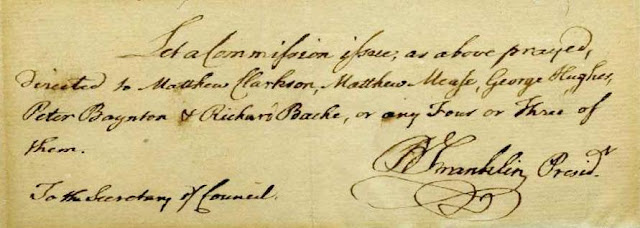 Let a Commission issue, as above prayed,
directed to Matthew Clarkson, Matthew Mease, George Hughes,
Peter Baynton & Richard Bache, or any Four or Three of
them.
B Franklin, Presidt.
To the Secretary of Council.